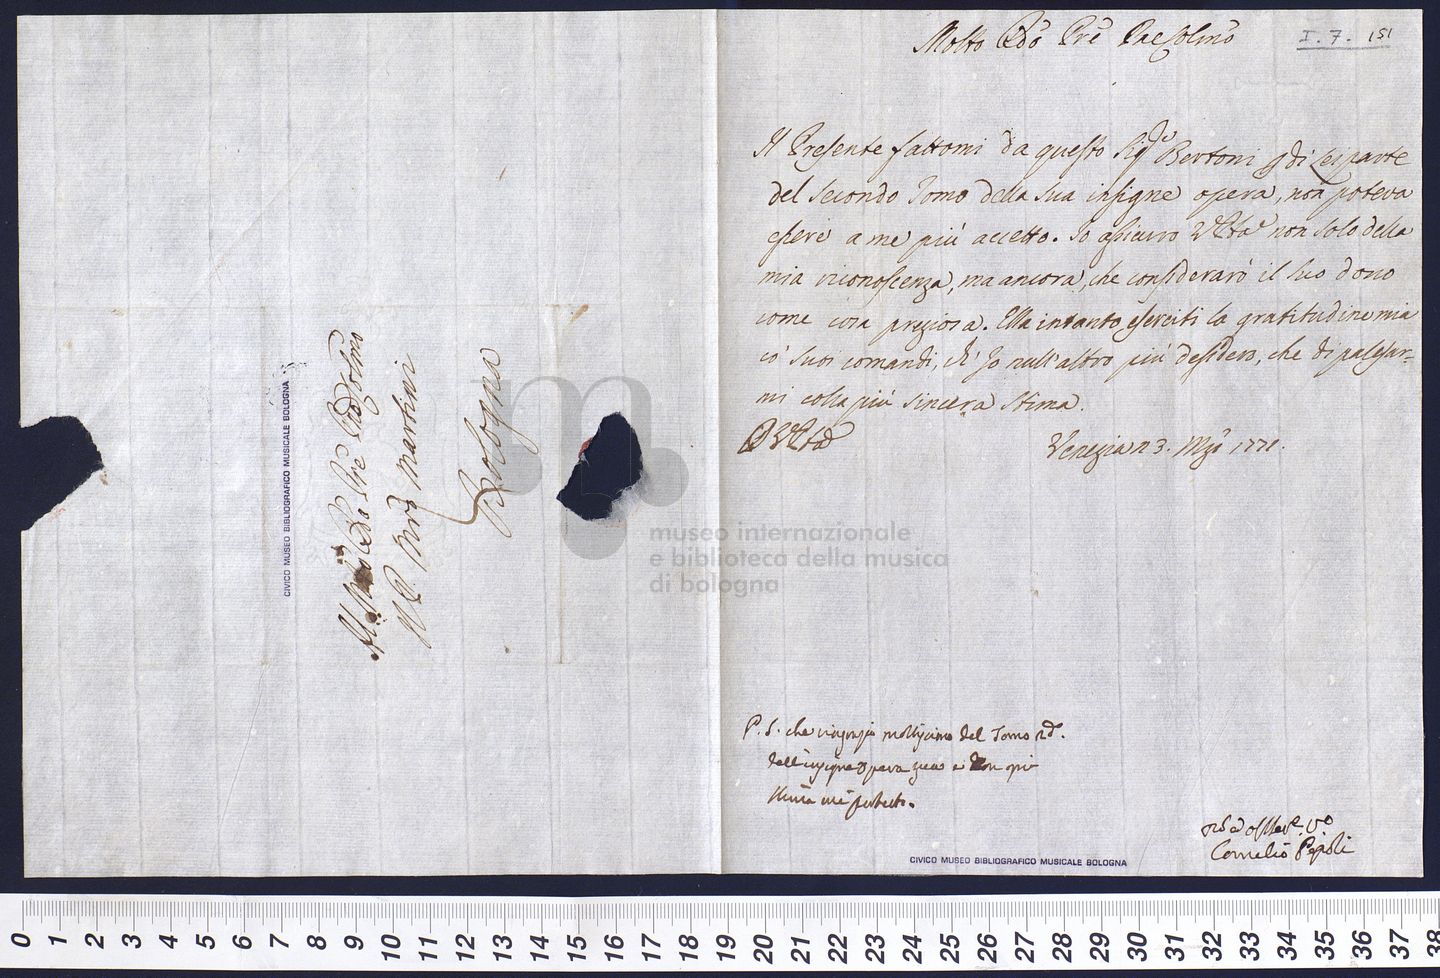 Molto Rdo Pre Pad Colmo
I. 7. 151
Il Presente fattomi da questo Sigr Bertoni di Lei parte
del secondo Tomo della sua insigne opera, non poteva
essere a me più accetto. Io assicuro V Pta non solo della
mia riconoscenza, ma ancora, che considerarò il suo dono
come cosa preziosa. Ella intanto eserciti la gratitudine mia
co' suoi comandi, ch' Io null'altro più desidero, che di palesar-
mi colla più sincera stima.
D V Pta
Venezia 23. Mgo 1771.
P. S. che ringrazio moltissimo del Tomo 2do.
dell'insigne opera
Cornelio Pepoli
Al Molto Rdo Pre Pad Colmo
Il P. Mro Martini
Bologna
CIVICO MUSEO BIBLIOGRAFICO MUSICALE BOLOGNA
CIVICO MUSEO BIBLIOGRAFICO MUSICALE BOLOGNA
museo internazionale
e biblioteca della musica
di bologna
0 1 2 3 4 5 6 7 8 9 10 11 12 13 14 15 16 17 18 19 20 21 22 23 24 25 26 27 28 29 30 31 32 33 34 35 36 37 38